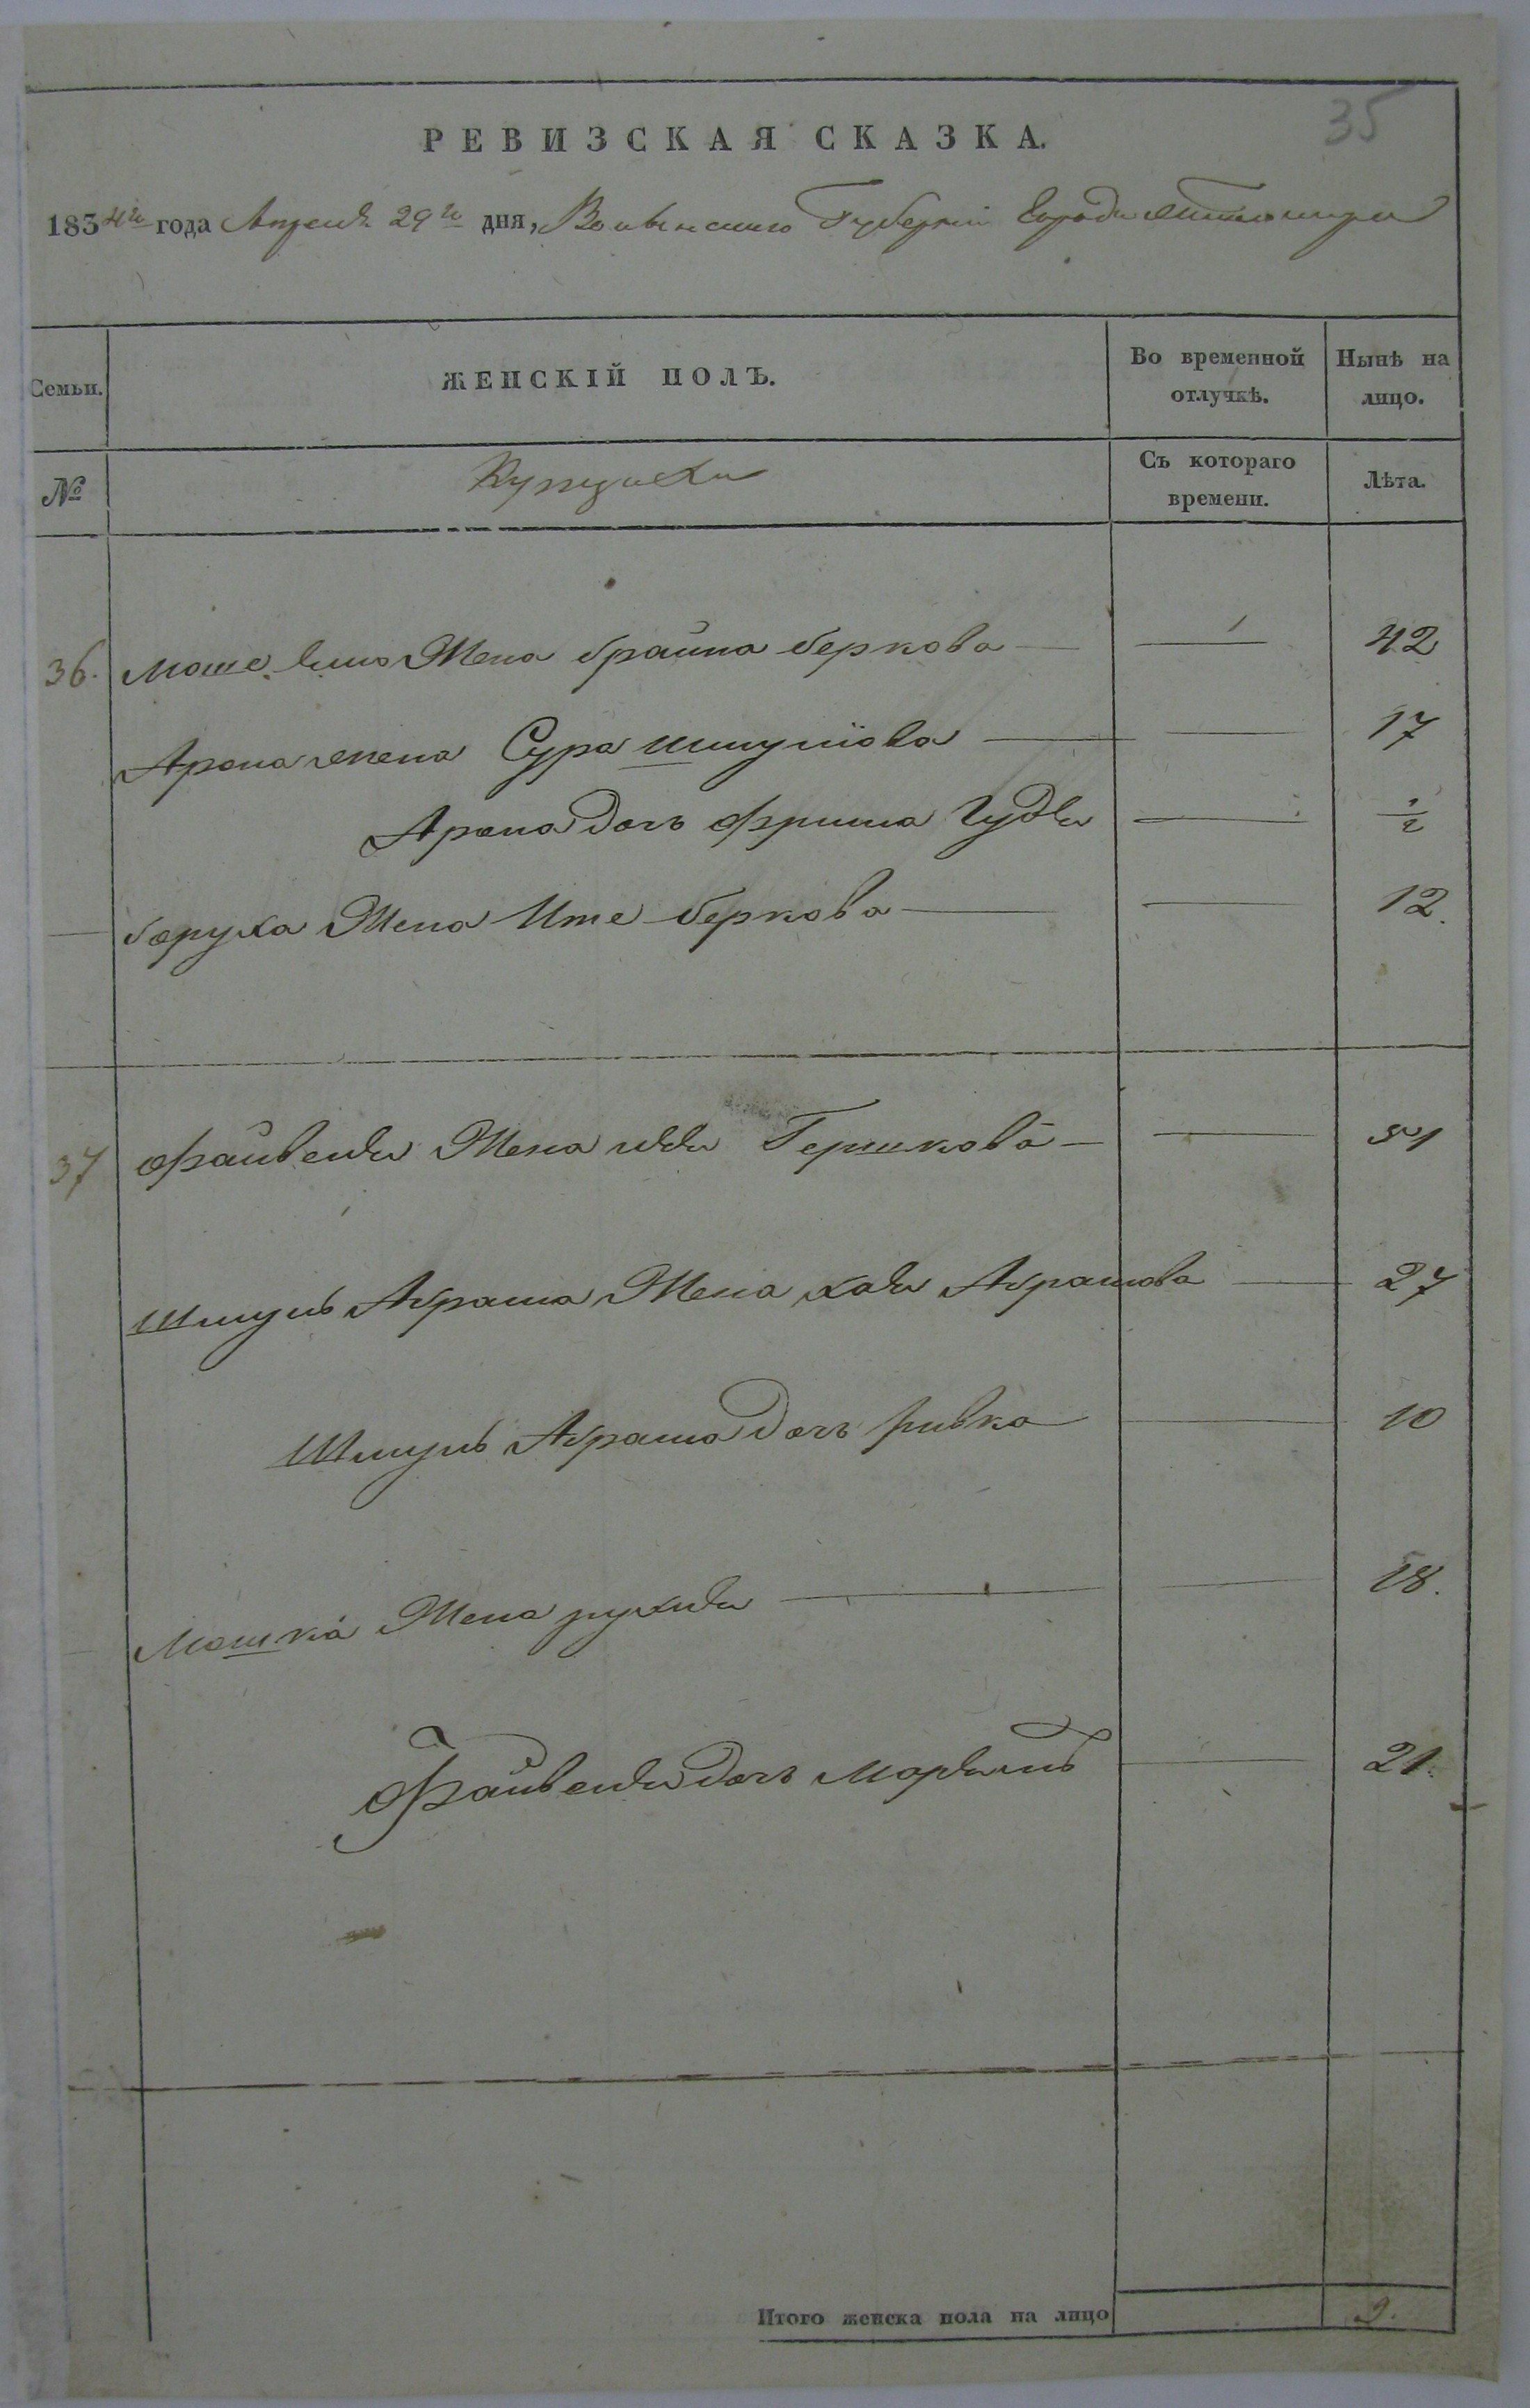 35
РЕВИЗСКАЯ СКАЗКА.
1834го года Апреля 29го дня, Волынской Губернии Города Житомира
Семьи. ЖЕНСКІЙ ПОЛЪ. Во временной отлучкѣ. Нынѣ на лицо.
№ Купецкіи Съ котораго времени. Лѣта.
36. Моше Жена брайна беркова — — 42
Арона жена Сура шмулiова — — 17
Арона дочь фрима Гудля — 1/2
боруха Жена Ите беркова — — 12.
37 Файвеля Жена Гершкова — — 51
Шмуль Абрама Жена хая Абрамова — 27
Шмуль Абрама дочь ривка — 10
Мошка Жена рухля — — 18.
Файвеля дочь — 21.
Итого женска пола на лицо 9.